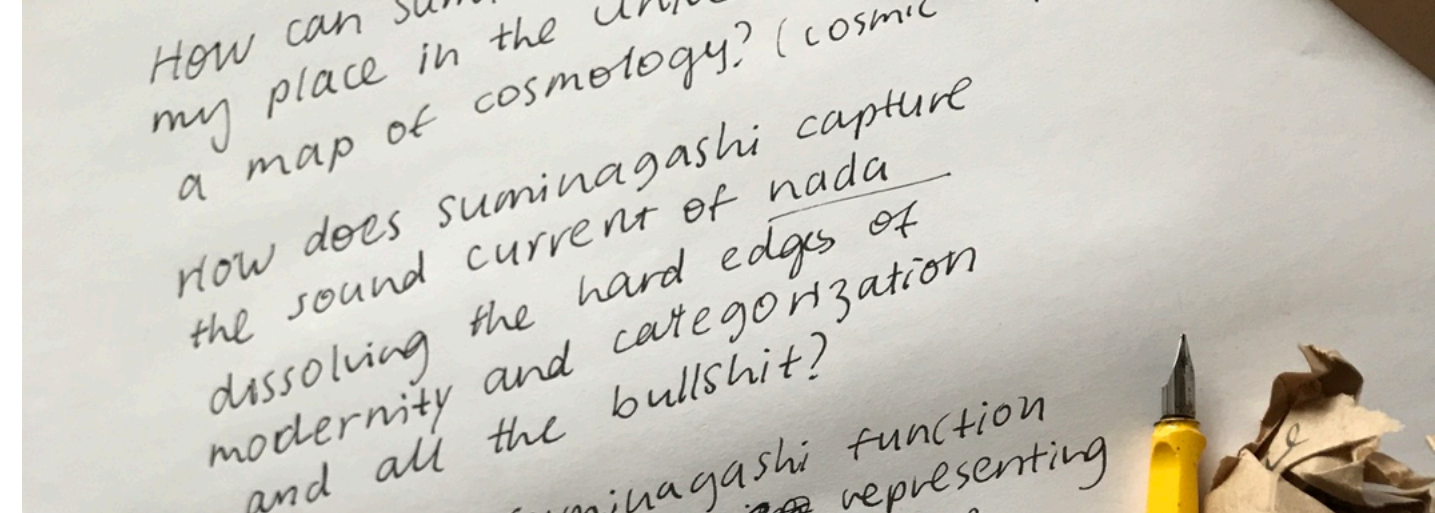 How can
my place in the
a map of cosmology? (cosmic
How does suminagashi capture
the sound current of nada
dissolving the hard edges of
modernity and categorization
and all the bullshit?
function
representing